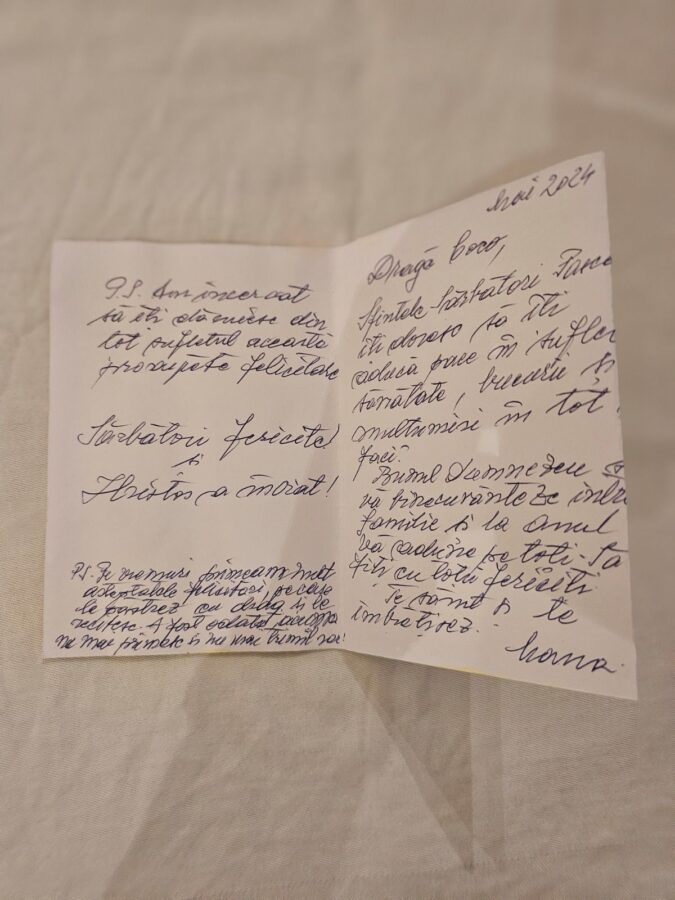 P.S. Am încercat
să îți dăruiesc din
tot sufletul această
felicitare
Sărbători fericite!
și
Hristos a înviat!
P.S. Pe vremuri primeam mult
așteptatele felicitări, pe care
le păstrez cu drag și le
recitesc. A fost odată!
nu mai primesc și nu mai trimit
Mai 2024
Dragă Coco,
Sfintele Sărbători Pasca
îți doresc să îți
aducă pace în suflet
sănătate, bucurii și
mulțumiri în tot
faci.
Bunul Dumnezeu să
vă binecuvânteze într
familie și la anul
vă adune pe toți. Să
fiți cu toții fericiți
Te sărut și te
îmbrățișez.